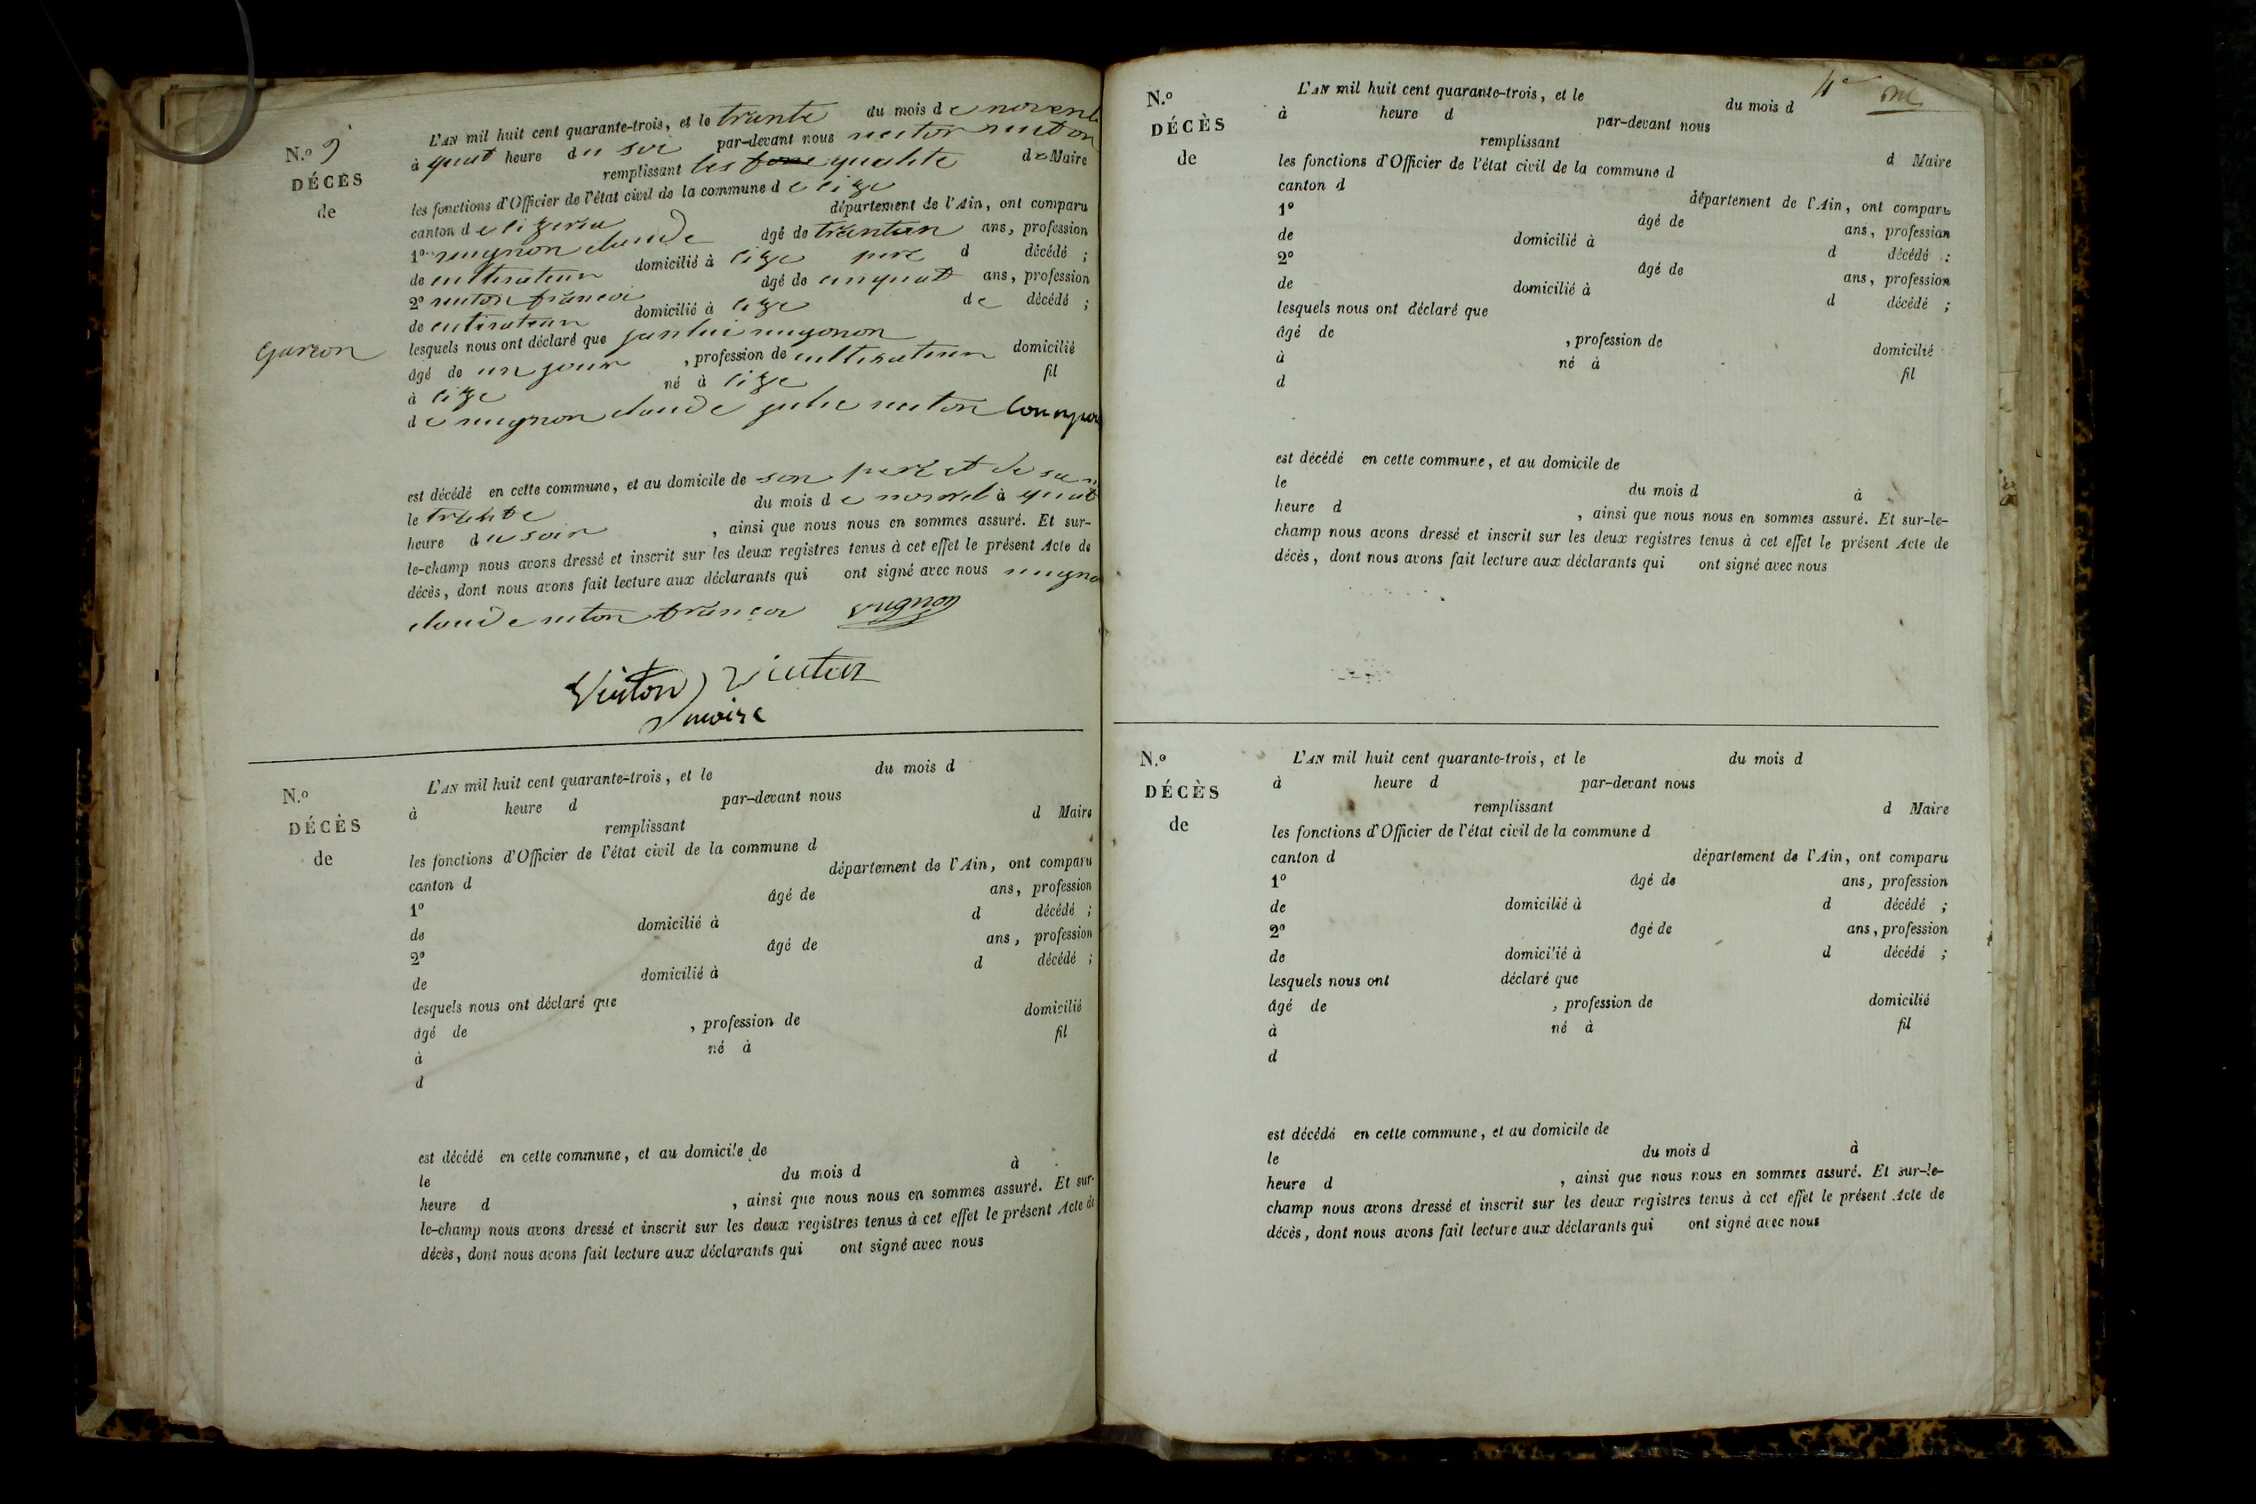 N.º 9
DÉCÈS
de
garcon
L'AN mil huit cent quarante-trois, et le trante du mois d e novenb
à quat heure du soi par-devant nous
remplissant les fonc qualite de Maire
les fonctions d'Officier de l'état civil de la commune d e cize
canton d e lizeria département de l'Ain, ont comparu
1º mugnon claude âgé de trantun ans, profession
de cultivateur domicilié à cize pere d décédé ;
2º francoi âgé de cinquat ans, profession
de cutivateur domicilié à cize de décédé ;
lesquels nous ont déclaré que janlui mugonon
âgé de un jour , profession de cultivateur domicilié
à cize né à cize fil
d e mugnon claude julie
est décédé en cette commune, et au domicile de son pere et de sa
le trante du mois d e à quat
heure du soir , ainsi que nous nous en sommes assuré. Et sur-
le-champ nous avons dressé et inscrit sur les deux registres tenus à cet effet le présent Acte de
décès, dont nous avons fait lecture aux déclarants qui ont signé avec nous mugno
claude francoi vugnon
Vuiton
N.º
DÉCÈS
de
L'AN mil huit cent quarante-trois, et le du mois d
à heure d par-devant nous
remplissant d Maire
les fonctions d'Officier de l'état civil de la commune d
canton d département de l'Ain, ont comparu
1º âgé de ans, profession
de domicilié à d décédé ;
2º âgé de ans, profession
de domicilié à d décédé ;
lesquels nous ont déclaré que
âgé de , profession de domicilié
à né à fil
d
est décédé en cette commune, et au domicile de
le du mois d à
heure d , ainsi que nous nous en sommes assuré. Et sur-
le-champ nous avons dressé et inscrit sur les deux registres tenus à cet effet le présent Acte de
décès, dont nous avons fait lecture aux déclarants qui ont signé avec nous
4e
N.º
DÉCÈS
de
L'AN mil huit cent quarante-trois, et le du mois d
à heure d par-devant nous
remplissant d Maire
les fonctions d'Officier de l'état civil de la commune d
canton d département de l'Ain, ont comparu
1º âgé de ans, profession
de domicilié à d décédé ;
2º âgé de ans, profession
de domicilié à d décédé ;
lesquels nous ont déclaré que
âgé de , profession de domicilié
à né à fil
d
est décédé en cette commune, et au domicile de
le du mois d à
heure d , ainsi que nous nous en sommes assuré. Et sur-le-
champ nous avons dressé et inscrit sur les deux registres tenus à cet effet le présent Acte de
décès, dont nous avons fait lecture aux déclarants qui ont signé avec nous
N.º
DÉCÈS
de
L'AN mil huit cent quarante-trois, et le du mois d
à heure d par-devant nous
remplissant d Maire
les fonctions d'Officier de l'état civil de la commune d
canton d département de l'Ain, ont comparu
1º âgé de ans, profession
de domicilié à d décédé ;
2º âgé de ans, profession
de domicilié à d décédé ;
lesquels nous ont déclaré que
âgé de , profession de domicilié
à né à fil
d
est décédé en cette commune, et au domicile de
le du mois d à
heure d , ainsi que nous nous en sommes assuré. Et sur-le-
champ nous avons dressé et inscrit sur les deux registres tenus à cet effet le présent Acte de
décès, dont nous avons fait lecture aux déclarants qui ont signé avec nous